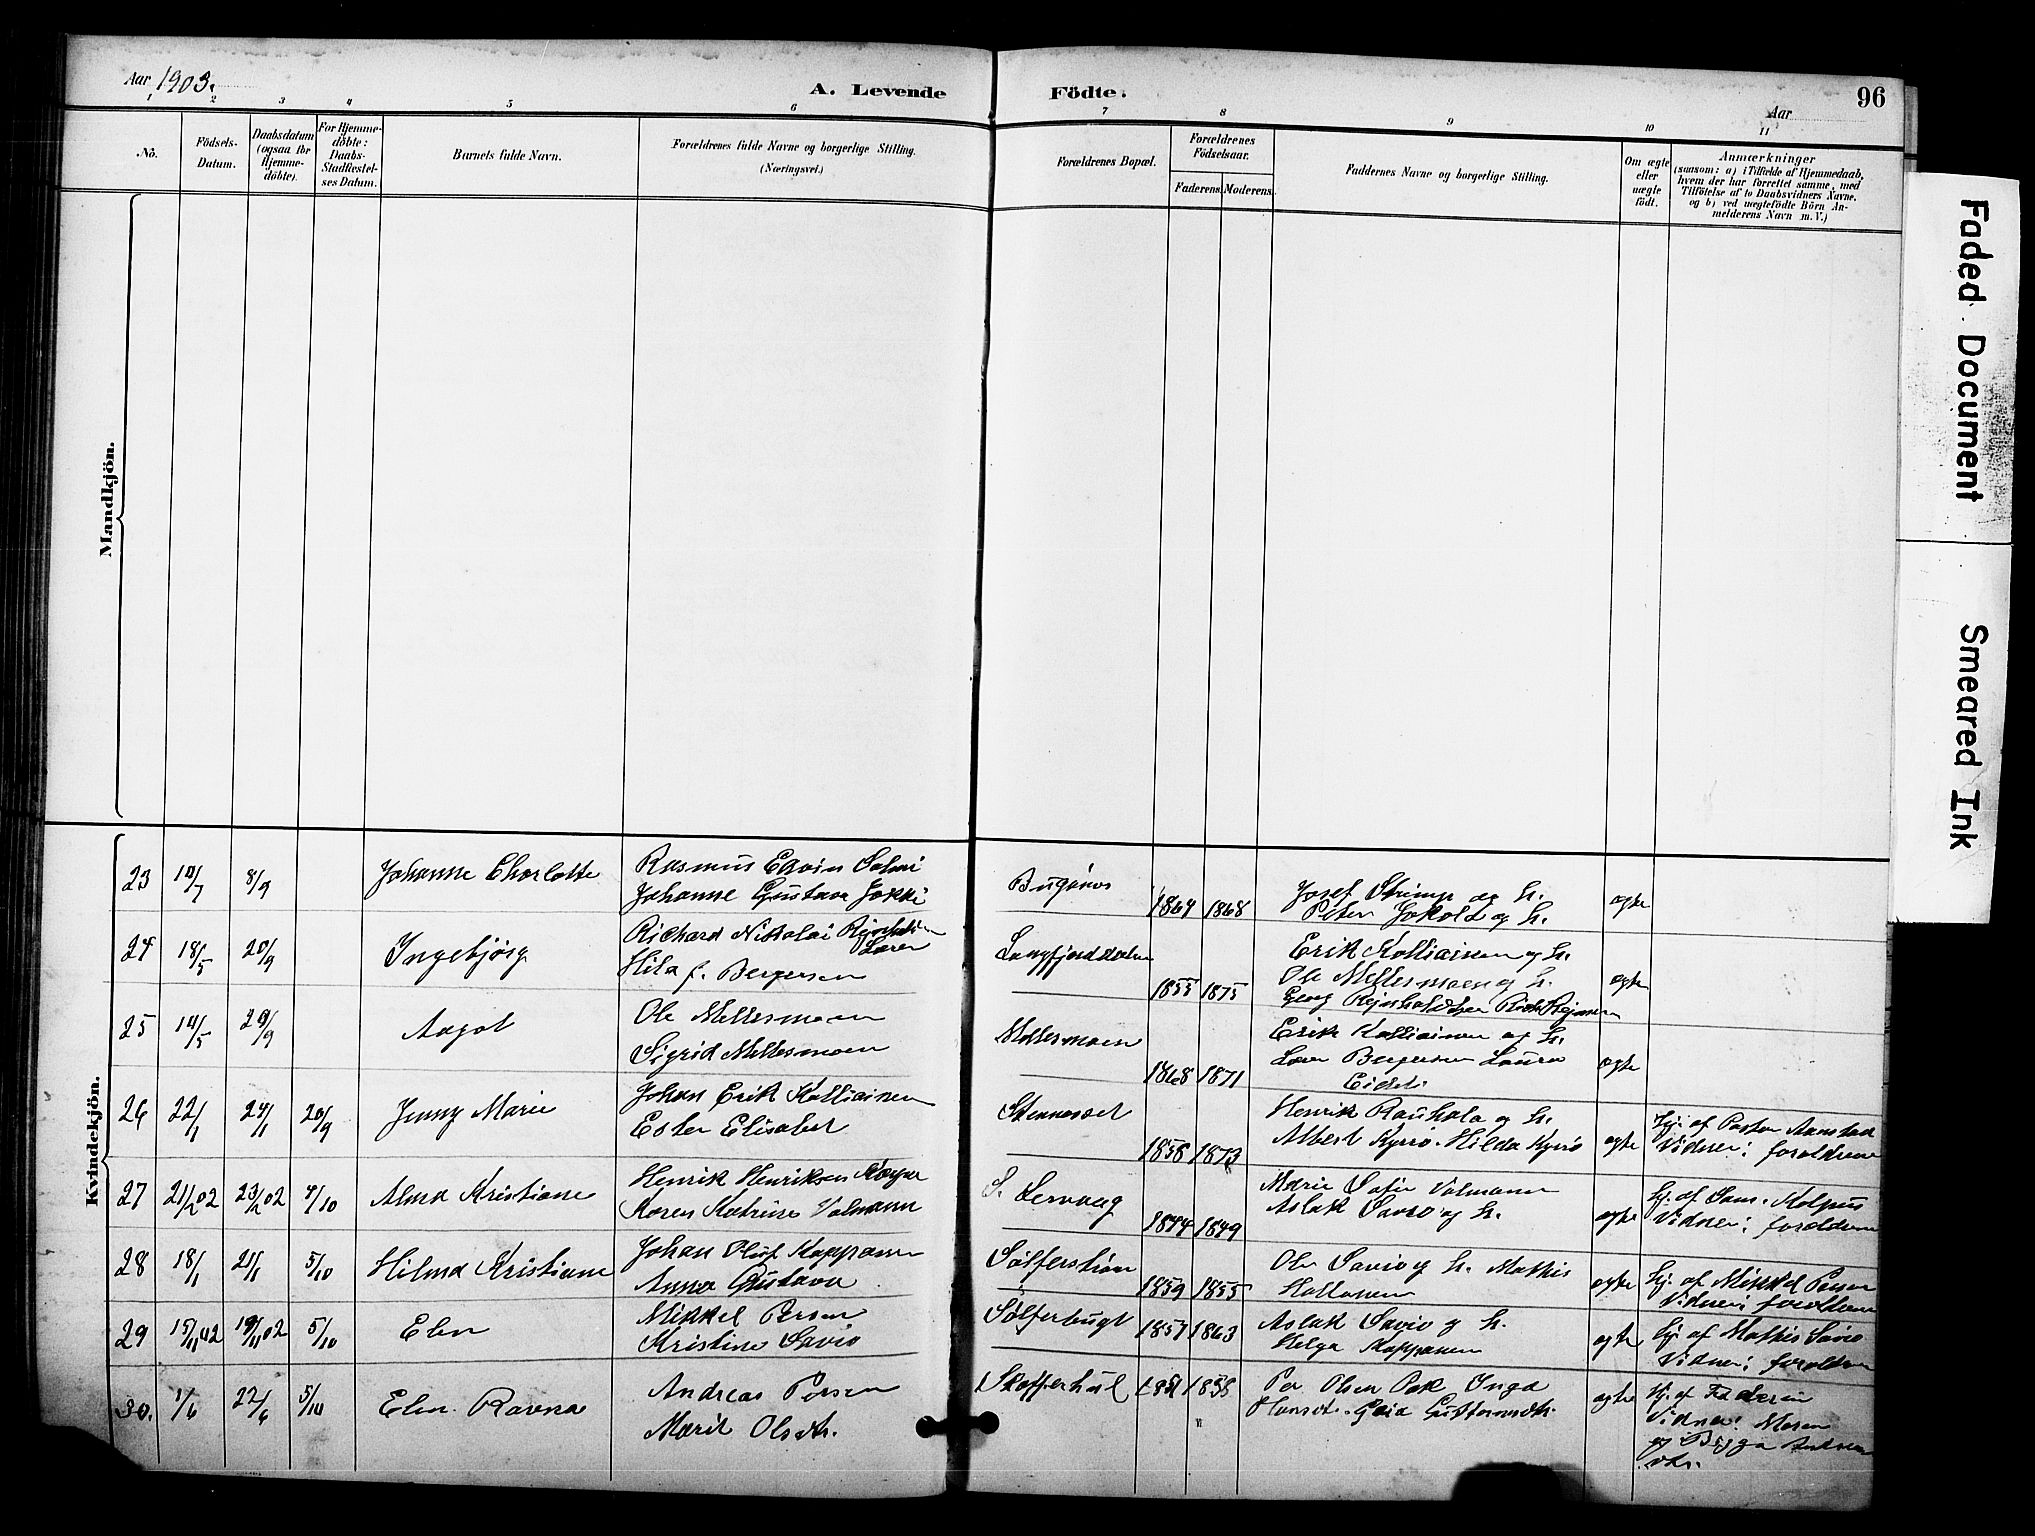 Aar 1903.
A. Levende Födte.
Aar
96
1 2 3 4 5 6 7 8 9 10 11
No.
Födsels-Datum.
Daabsdatum (ogsaa for Hjemme-döbte).
For Hjemme-döbte: Daabs-Stadfæstel-ses Datum.
Barnets fulde Navn.
Forældrenes fulde Navne og borgerlige Stilling.
(Næringsvei.)
Forældrenes Bopæl.
Forældrenes Födselsaar.
Faderens. Moderens.
Faddernes Navne og borgerlige Stilling.
Om ægte eller uægte födt.
Anmærkninger
(saasom: a) i Tilfælde af Hjemmedaab,
hvem der har forrettet samme, med
Tilföielse af to Daabsvidners Navne.
og b) ved uægtefödte Börn An-
melderens Navn m. V.)
Mandkjön.
Kvindekjön.
23 10/7 8/9 Johanne Charlotte
Rasmus Edvin Salmi
Johanne Gustava Jokki
Bugönes 1864 1868
Josef Strimp og h.
Peter Jokola og h.
ægte
24 18/5 20/9 Ingebjörg
Richard Nikolai
Hila f. Bergersen
Langfjorddalen 1855 1875
Erik Kalliainen og h.
Ole Mellesmoen og h.
Georg
ægte
25 14/5 20/9 Aagot
Ole Mellesmoen
Sigrid Mellesmoen
Mellesmoen 1868 1871
Erik Kalliainen og h.
Lars Bergersen Laura
ægte
26 22/1 24/1 20/9 Jenny Marie
Johan Erik Kalliainen
Ester Elisabet
1858 1873
Henrik Rauhala og h.
Albert Kyrö. Hilda Kyrö
ægte
Hj. af Pastor
Vidner: foreldrene
27 21/2 02 23/2 02 4/10 Alma Kristiane
Henrik Henriksen
Karen Katrine Valmann
S. Lervaag 1844 1849
Marie Sofie Valmann
Aslak Savio og h.
ægte
Hj. af Sam. Kolpus
Vidner: foreldrene
28 18/1 21/1 5/10 Hilma Kristiane
Johan Oluf Kappanen
Anna Gustava
1859 1855
Ole Savio og h. Mathis
Hallonen
ægte
Hj. af Mikkel Persen
Vidner: foreldrene
29 15/11 02 19/11 02 5/10 Elen
Mikkel Persen
Kristine Savio
Sølferbugt 1857 1863
Aslak Savio og h.
Helga Kappanen
ægte
Hj. af Mathis Savio
Vidner: foreldrene
30. 1/6 22/6 5/10 Elen Ravna
Andreas Persen
Marit Olsdtr.
Skafferhul 1851 1858
Per Olsen Inga
Hansdtr.
ægte
Hj. af Faderen
Vidner: Moren
og Bigga
Faded Document
Smeared Ink